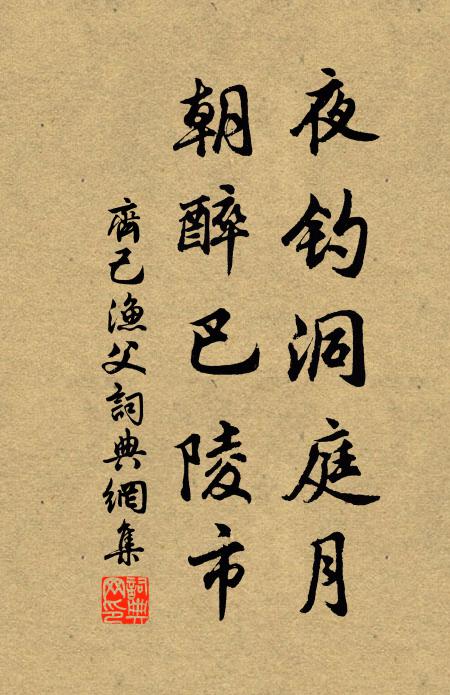 夜钓洞庭月
朝醉巴陵市
齊己漁父詞典網集
詞典網印